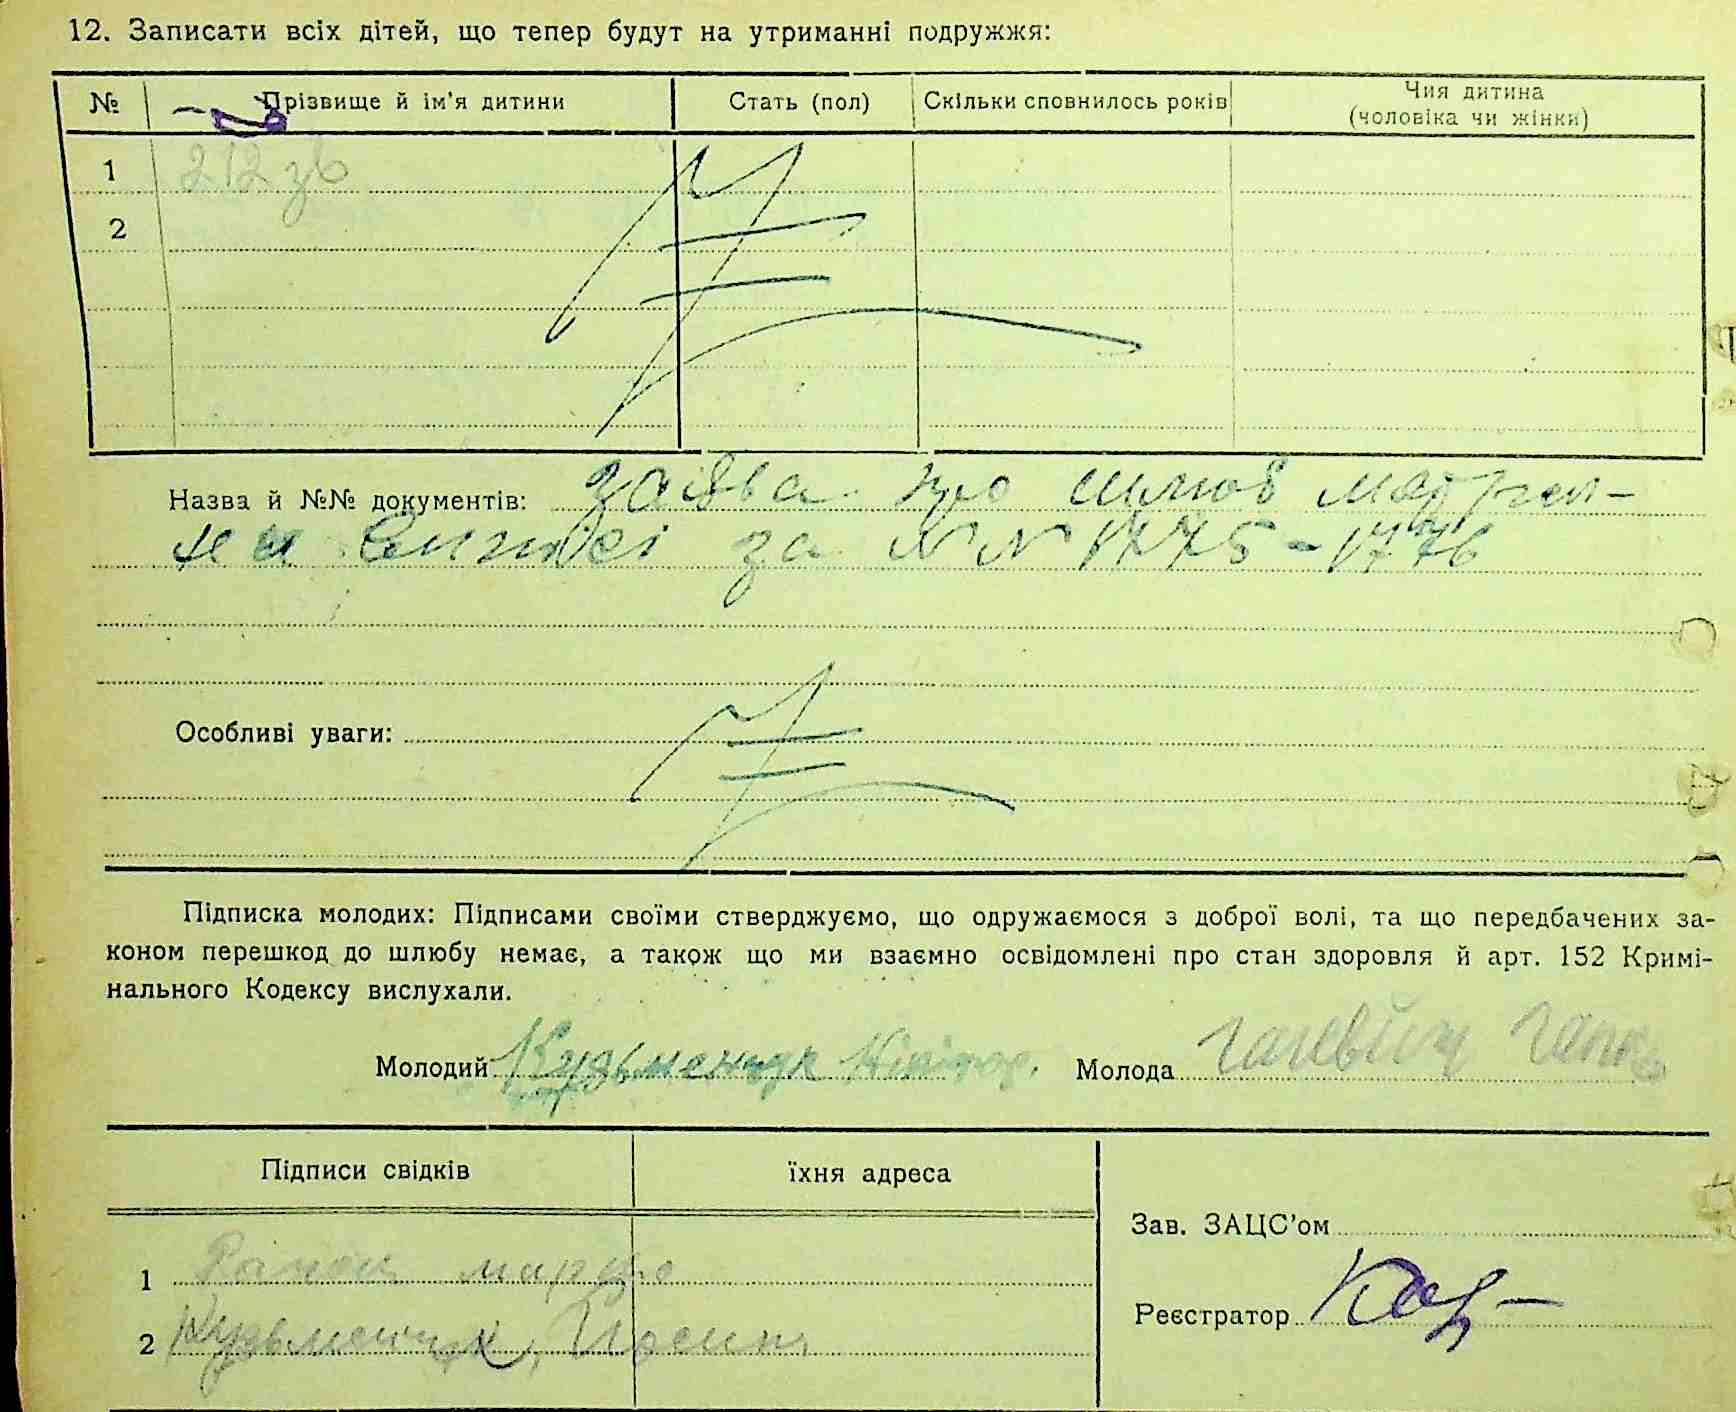 12. Записати всіх дітей, що тепер будут на утриманні подружжя:
№ Прізвище й ім'я дитини Стать (пол) Скільки сповнилось років Чия дитина
(чоловіка чи жінки)
1 212 зв
2
Назва й №№ документів: заява про шлюб
за №№ 1775-1776
Особливі уваги:
Підписка молодих: Підписами своїми стверджуємо, що одружаємося з доброї волі, та що передбачених за-
коном перешкод до шлюбу немає, а також що ми взаємно освідомлені про стан здоровля й арт. 152 Кримі-
нального Кодексу вислухали.
Молодий Кузьменчук Молода
Підписи свідків їхня адреса
Зав. ЗАЦС'ом
1
Реєстратор
2 Кузьменчук, Йосип